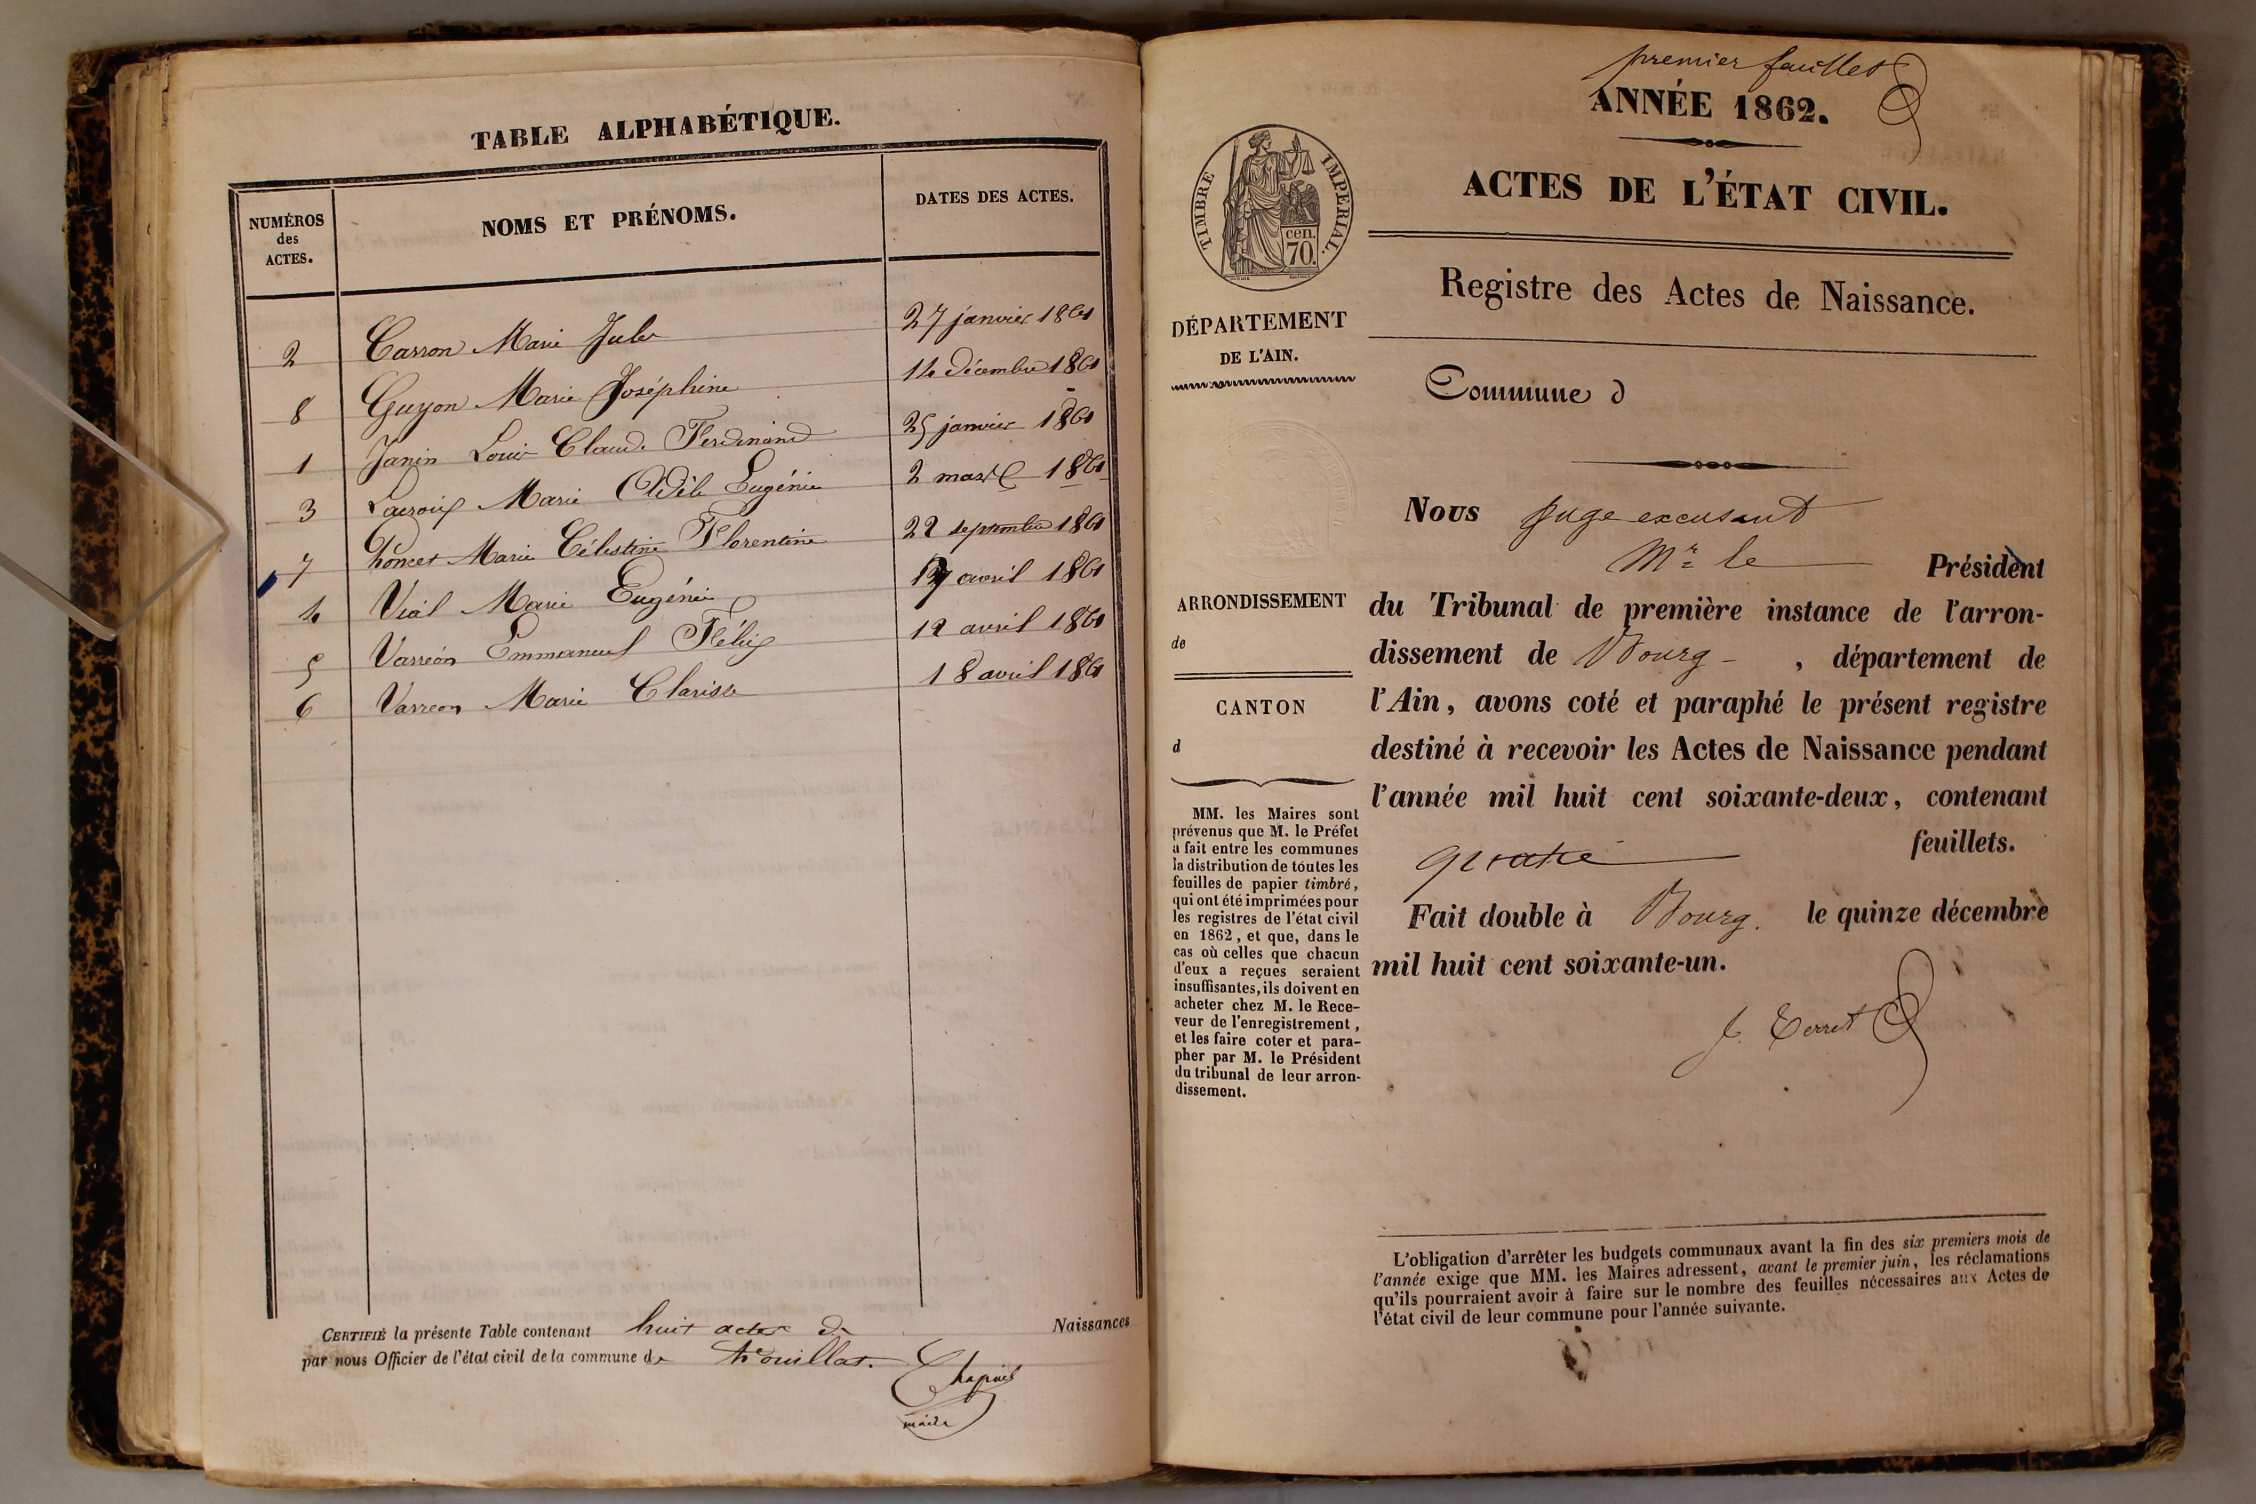 TABLE ALPHABÉTIQUE.
NUMÉROS des ACTES.
NOMS ET PRÉNOMS.
DATES DES ACTES.
2 Carron Marie Jules 27 janvier 1861
8 Guyon Marie Joséphine 14 décembre 1861
1 Janin Louis Claud. Ferdinand 25 janvier 1861
3 Lacroix Marie Adèle Eugénie 2 mars 1861
7 Poncet Marie Célestine Florentine 22 septembre 1861
4 Vial Marie Eugénie avril 1861
5 Varréon Emmanuel Félix 12 avril 1861
6 Varreon Marie Clarisse 18 avril 1861
CERTIFIÉ la présente Table contenant huit actes de Naissances
par nous Officier de l'état civil de la commune de
Chapuis
maire
premier feuillet
ANNÉE 1862.
ACTES DE L'ÉTAT CIVIL.
TIMBRE IMPERIAL.
cen.
70.
Registre des Actes de Naissance.
DÉPARTEMENT
DE L'AIN.
Commune d
ARRONDISSEMENT
de
CANTON
d
MM. les Maires sont
prévenus que M. le Préfet
a fait entre les communes
la distribution de toutes les
feuilles de papier timbré,
qui ont été imprimées pour
les registres de l'état civil
en 1862, et que, dans le
cas où celles que chacun
d'eux a reçues seraient
insuffisantes, ils doivent en
acheter chez M. le Rece-
veur de l'enregistrement,
et les faire coter et para-
pher par M. le Président
du tribunal de leur arron-
dissement.
Nous juge excusant
Mr le Président
du Tribunal de première instance de l'arron-
dissement de Bourg , département de
l'Ain, avons coté et paraphé le présent registre
destiné à recevoir les Actes de Naissance pendant
l'année mil huit cent soixante-deux, contenant
quatre feuillets.
Fait double à Bourg. le quinze décembre
mil huit cent soixante-un.
J. Terret
L'obligation d'arrêter les budgets communaux avant la fin des six premiers mois de
l'année exige que MM. les Maires adressent, avant le premier juin, les réclamations
qu'ils pourraient avoir à faire sur le nombre des feuilles nécessaires aux Actes de
l'état civil de leur commune pour l'année suivante.